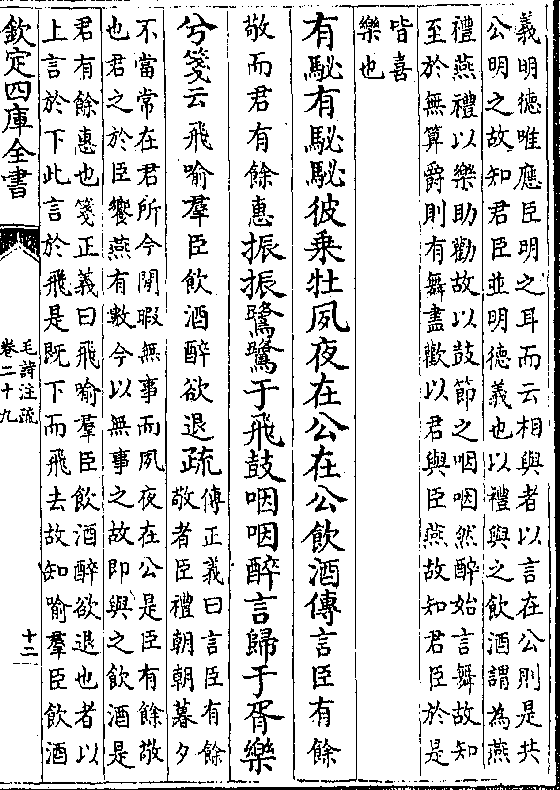 義明德唯應臣明之耳而云相與者以言在公則是共
公明之故知君臣並明德義也以禮與之飲酒謂為燕
禮燕禮以樂助勸故以鼓節之咽咽然醉始言舞故知
至於無算爵則有舞盡歡以君與臣燕故知君臣於是
皆喜
樂也
有駜有駜駜彼乗牡夙夜在公在公飲酒傳言臣有餘
敬而君有餘惠振振鷺鷺于飛鼓咽咽醉言歸于胥樂
兮箋云飛喻羣臣飲酒醉欲退疏
傳正義曰言臣有餘
敬者臣禮朝朝暮夕
不當常在君所今閒暇無事而夙夜在公是臣有餘敬
也君之於臣饗燕有數今以無事之故即與之飲酒是
君有餘惠也箋正義曰飛喻羣臣飲酒醉欲退也者以
上言於下此言於飛是既下而飛去故知喻羣臣飲酒
欽定四庫全書
毛詩注疏
卷二十九
十二